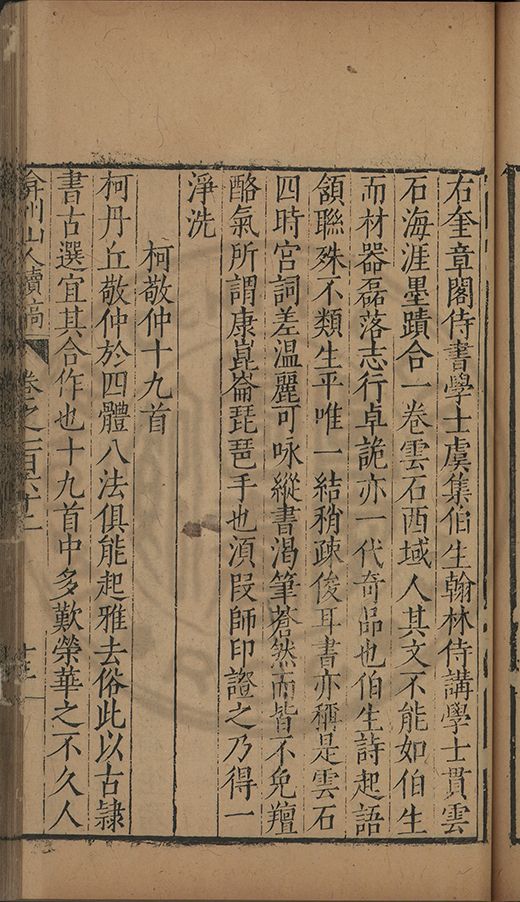 右奎章閣侍書學士虞集伯生翰林侍講學士貫雲
石海涯墨蹟合一卷雲石西域人其文不能如伯生
而材器磊落志行卓詭亦一代奇品也伯生詩起語
頷聯殊不類生平唯一結稍疎俊耳書亦稱是雲石
四時宮詞差溫麗可咏縱書渴筆蒼然而皆不免羶
酪氣所謂康崑崙琵琶手也湏叚師印證之乃得一
淨洗
柯敬仲十九首
柯丹丘敬仲於四體八法俱能起雅去俗此以古隷
書古選宜其合作也十九首中多歎榮華之不久人
弇州山人續稿
卷之一百六十二